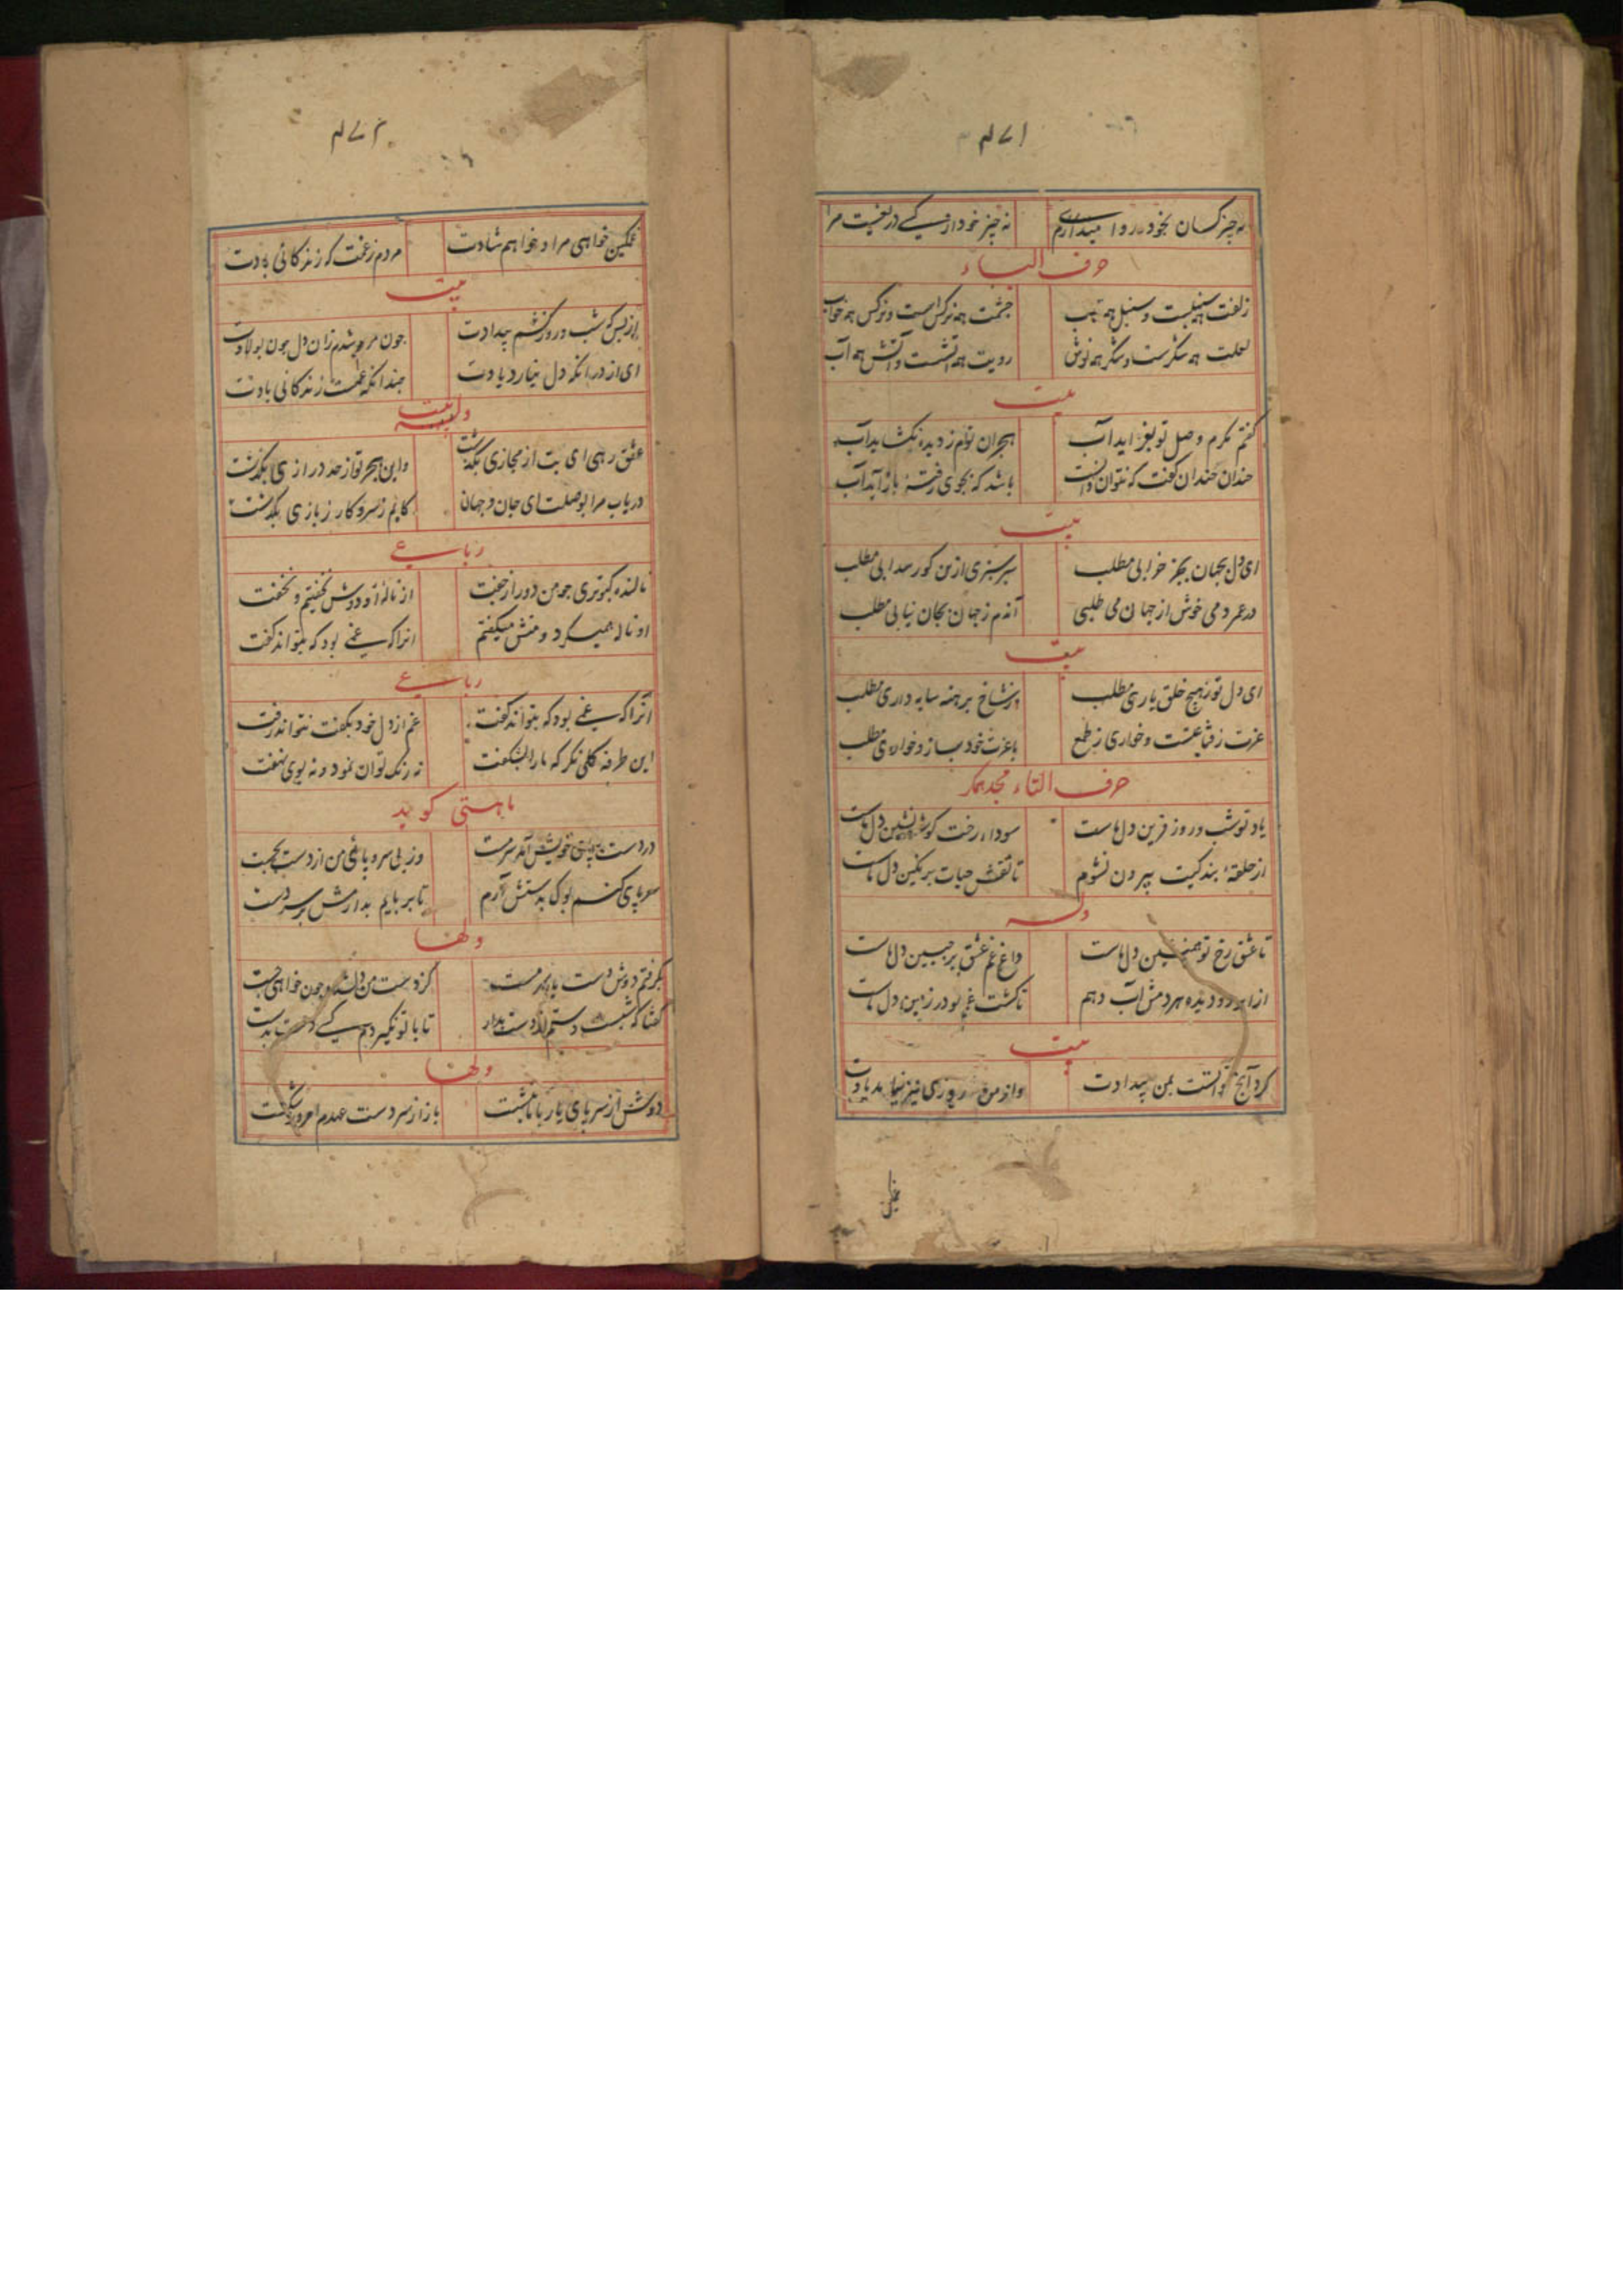 ۴۷۱
نه چیز کسان بخود روا میدارم نه چیز خود از کسے دریغست مرا
حرف الباء
زلفت همه سنبلست و سنبل همه تاب چشمت همه نرکس است و نرکس همه خواب
لعلت همه شکرست و شکر همه نوش رویت همه آتشست و آتش همه آب
بیت
کفتم نکرم وصل تو بفزاید آب هجران توام ز دیده بکشاید آب
خندان خندان کفت که نتوان دانست باشد که بجوی رفته باز آید آب
بیت
ای دل بجهان بجز خرابی مطلب سرسبزی ازین کور سدابی مطلب
در عمر دمی خوش از جهان می طلبی آندم ز جهان بجان نیابی مطلب
بیت
ای دل تو ز هیچ خلق یاری مطلب از شاخ برهنه سایه داری مطلب
عزت ز قناعتست و خواری ز طمع با عزت خود بساز و خواری مطلب
حرف التاء مجد همکر
یاد تو شب و روز قرین دل ماست سوداء رخت کوشه نشین دل ماست
از حلقهٔ بندکیت بیرون نشوم تا نقش حیات بر نکین دل ماست
وله
تا عشق رخ تو همنشین دل ماست داغ غم عشق بر جبین دل ماست
از ابر دو دیده هر دمش آب دهم تا کشت غم تو در زمین دل ماست
بیت
کرد آنچ توانست بمن بیدادت واز من روزی نیز نیامد یادت
۴۷۲
غمکین خواهی مرا و خواهم شادت مردم ز غمت که زندکانی بادت
بیت
از بس که شب و روز کشم بیدادت چون موم شدم زان دل چون پولادت
ای از در آنکه دل نیارد یادت چندانکه غمت زندکانی بادت
بیت
عشق رهی ای بت از مجازی بکذشت واین هجر تو از حد درازی بکذشت
دریاب مرا بوصلت ای جان و جهان کابم ز سر و کار ز بازی بکذشت
رباعے
نالنده کبوتری چو من دور از جفت از نالهٔ او دوش نخفتیم و نخفت
او ناله همیکرد و منش میکفتم انرا که غمے بود که بتواند کفت
رباعے
آنرا که غمے بود که بتواند کفت غم از دل خود بکفت نتواند رفت
این طرفه کلی نکر که ما را بشکفت نه رنک توان نمود و نه بوی نهفت
ماهستی کوید
در دست خویش آمد سرمست وز بی سر و پائی من از دست بجست
سر پای کنم بوک بدستش آرم تا بر بایم بدارمش بر سر دست
ولها
بکرفتم دوش دست یار سرمست کز دست من دلشده چون خواهی جست
کفتا که شبست دستم از دست بدار تا با تو نکیردم کسے دست بدست
ولها
دوش از سر پای یار با ما بنشست باز از سر دست عهدم امروز شکست